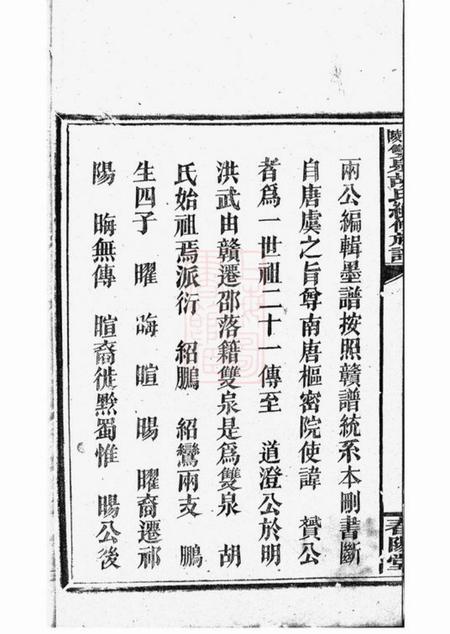 兩公編輯墨譜按照贛譜統系本刪書斷
自唐虞之旨尊南唐樞密院使諱 贇公
者爲一世祖二十一傳至 道澄公於明
洪武由贛遷邵落籍雙泉是爲雙泉 胡
氏始祖焉派衍 紹鵬 紹鸞兩支 鵬
生四子 曜 晦 暄 暘 曜裔遷祁
陽 晦無傳 暄裔徙黔蜀惟 暘公後
氏續修族譜
春陽堂